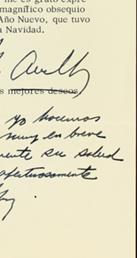 me es grato expre
magnífico obsequio
Año Nuevo, que tuvo
a Navidad.
s mejores deseos
Yo hacemos
muy en breve
mente su salud
afectuosamente